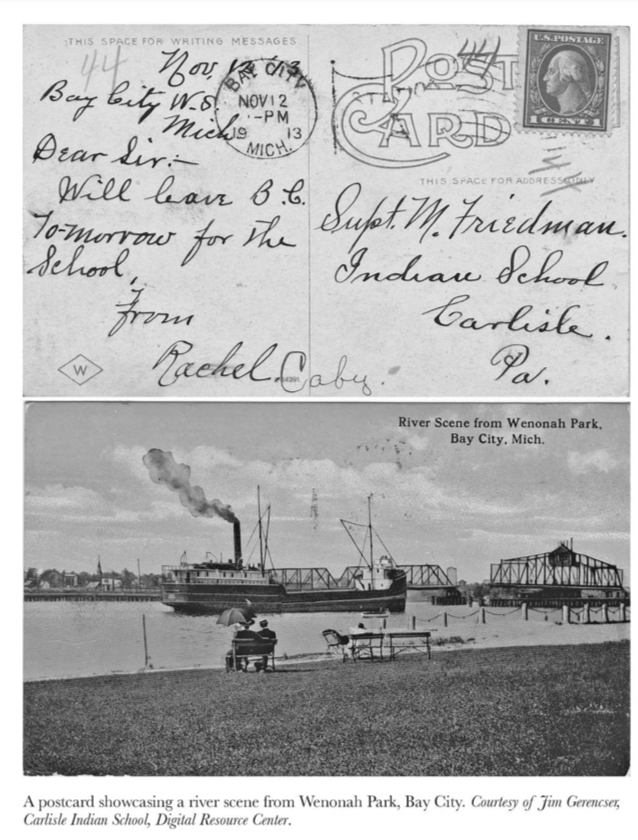 THIS SPACE FOR WRITING MESSAGES
44
Nov. 12, '13
Bay City W.S.
Mich.
Dear Sir:—
Will leave B.C.
To-morrow for the
School,
From
Rachel. Caby.
W
BAY CITY
NOV 12
-PM
19 13
MICH.
POST
CARD
44
U.S. POSTAGE
1 CENT 1
THIS SPACE FOR ADDRESS ONLY
Supt. M. Friedman.
Indian School
Carlisle.
Pa.
River Scene from Wenonah Park,
Bay City, Mich.
A postcard showcasing a river scene from Wenonah Park, Bay City. Courtesy of Jim Gerencser,
Carlisle Indian School, Digital Resource Center.